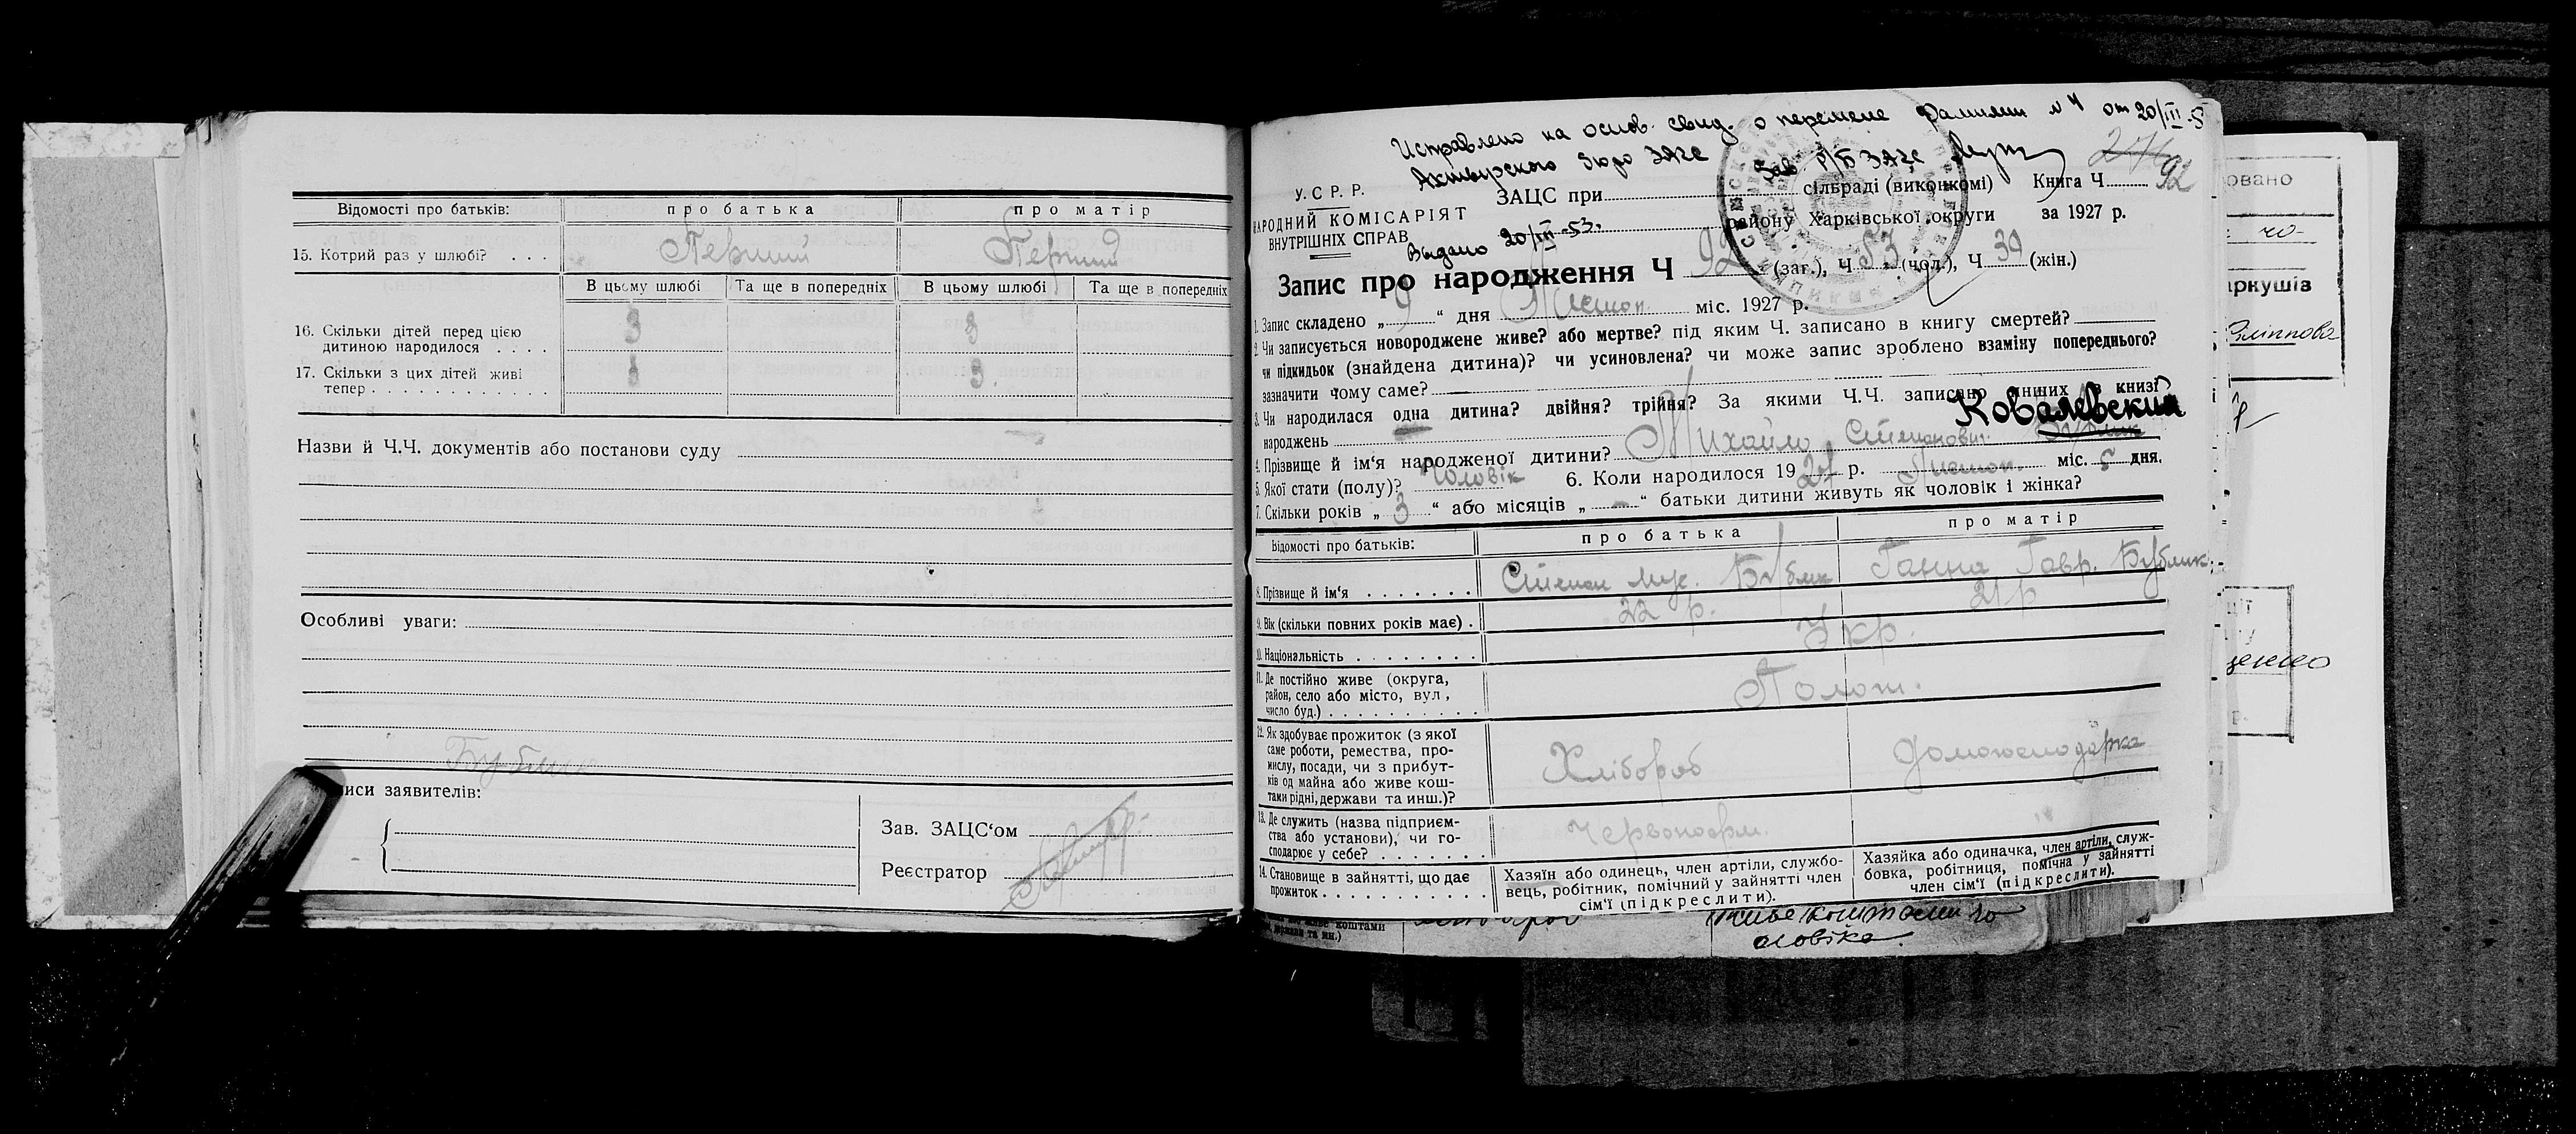 Відомості про батьків: про батька про матір
15. Котрий раз у шлюбі? . . . Перший Перший
В цьому шлюбі Та ще в попередніх В цьому шлюбі Та ще в попередніх
16. Скільки дітей перед цією
дитиною народилося . . . . 3 3
17. Скільки з цих дітей живі
тепер . . . . . . . . . . . . 3 3
Назви й Ч.Ч. документів або постанови суду
Особливі уваги:
Бублик
иси заявителів:
Зав. ЗАЦС‘ом
Реєстратор
Исправлено на основ. свид. о перемене фамилии № 4 от 20/III-5
Ахтырского бюро ЗАГС Зав. Р/Б ЗАГС
У. С. Р. Р.
НАРОДНИЙ КОМІСАРІЯТ
ВНУТРІШНІХ СПРАВ
ЗАЦС при сілбраді (виконкомі) Книга Ч. 92
району Харківської округи за 1927 р.
Выдано 20/III-53.
Запис про народження Ч 92 (заг.), Ч. 53 (чол.), Ч. 39 (жін.)
1. Запис складено „ 9 “ дня Листоп. міс. 1927 р.
2. Чи записується новороджене живе? або мертве? під яким Ч. записано в книгу смертей?
чи підкидьок (знайдена дитина)? чи усиновлена? чи може запис зроблено взаміну попереднього?
зазначити чому саме?
3. Чи народилася одна дитина? двійня? трійня? За якими Ч.Ч. записано инших в книзі
народжень
Ковалевский
4. Прізвище й ім‘я народженої дитини? Михайло Степанович Бублик
5. Якої стати (полу)? Чоловік 6. Коли народилося 1927 р. Листоп. міс. 5 дня.
7. Скільки років „ 3 “ або місяців „ — “ батьки дитини живуть як чоловік і жінка?
Відомості про батьків: про батька про матір
8. Прізвище й ім‘я . . . . . . . Степан Мус. Бублик Ганна Гавр. Бублик
9. Вік (скільки повних років має) . 22 р. 21 р
10. Національність . . . . . . . . Укр.
11. Де постійно живе (округа,
район, село або місто, вул,
число буд.) . . . . . . . . . .
12. Як здобуває прожиток (з якої
саме роботи, ремества, про-
мислу, посади, чи з прибут-
ків од майна або живе кош-
тами рідні, держави та инш.)?
Хлібороб Домогосподарка
13. Де служить (назва підприєм-
ства або установи), чи го-
сподарює у себе? . . . . . . .
Червоноарм.
14. Становище в зайнятті, що дає
прожиток . . . . . . . . . . .
Хазяїн або одинець, член артіли, службо-
вець, робітник, помічний у зайнятті член
сім‘ї (підкреслити).
Хазяйка або одиначка, член артіли, служ-
бовка, робітниця, помічна у зайнятті
член сім‘ї (підкреслити).
коштами
держави та ин.)
живе коштами чо
ловіка.
овано
чо-
аркушів
Філіппова